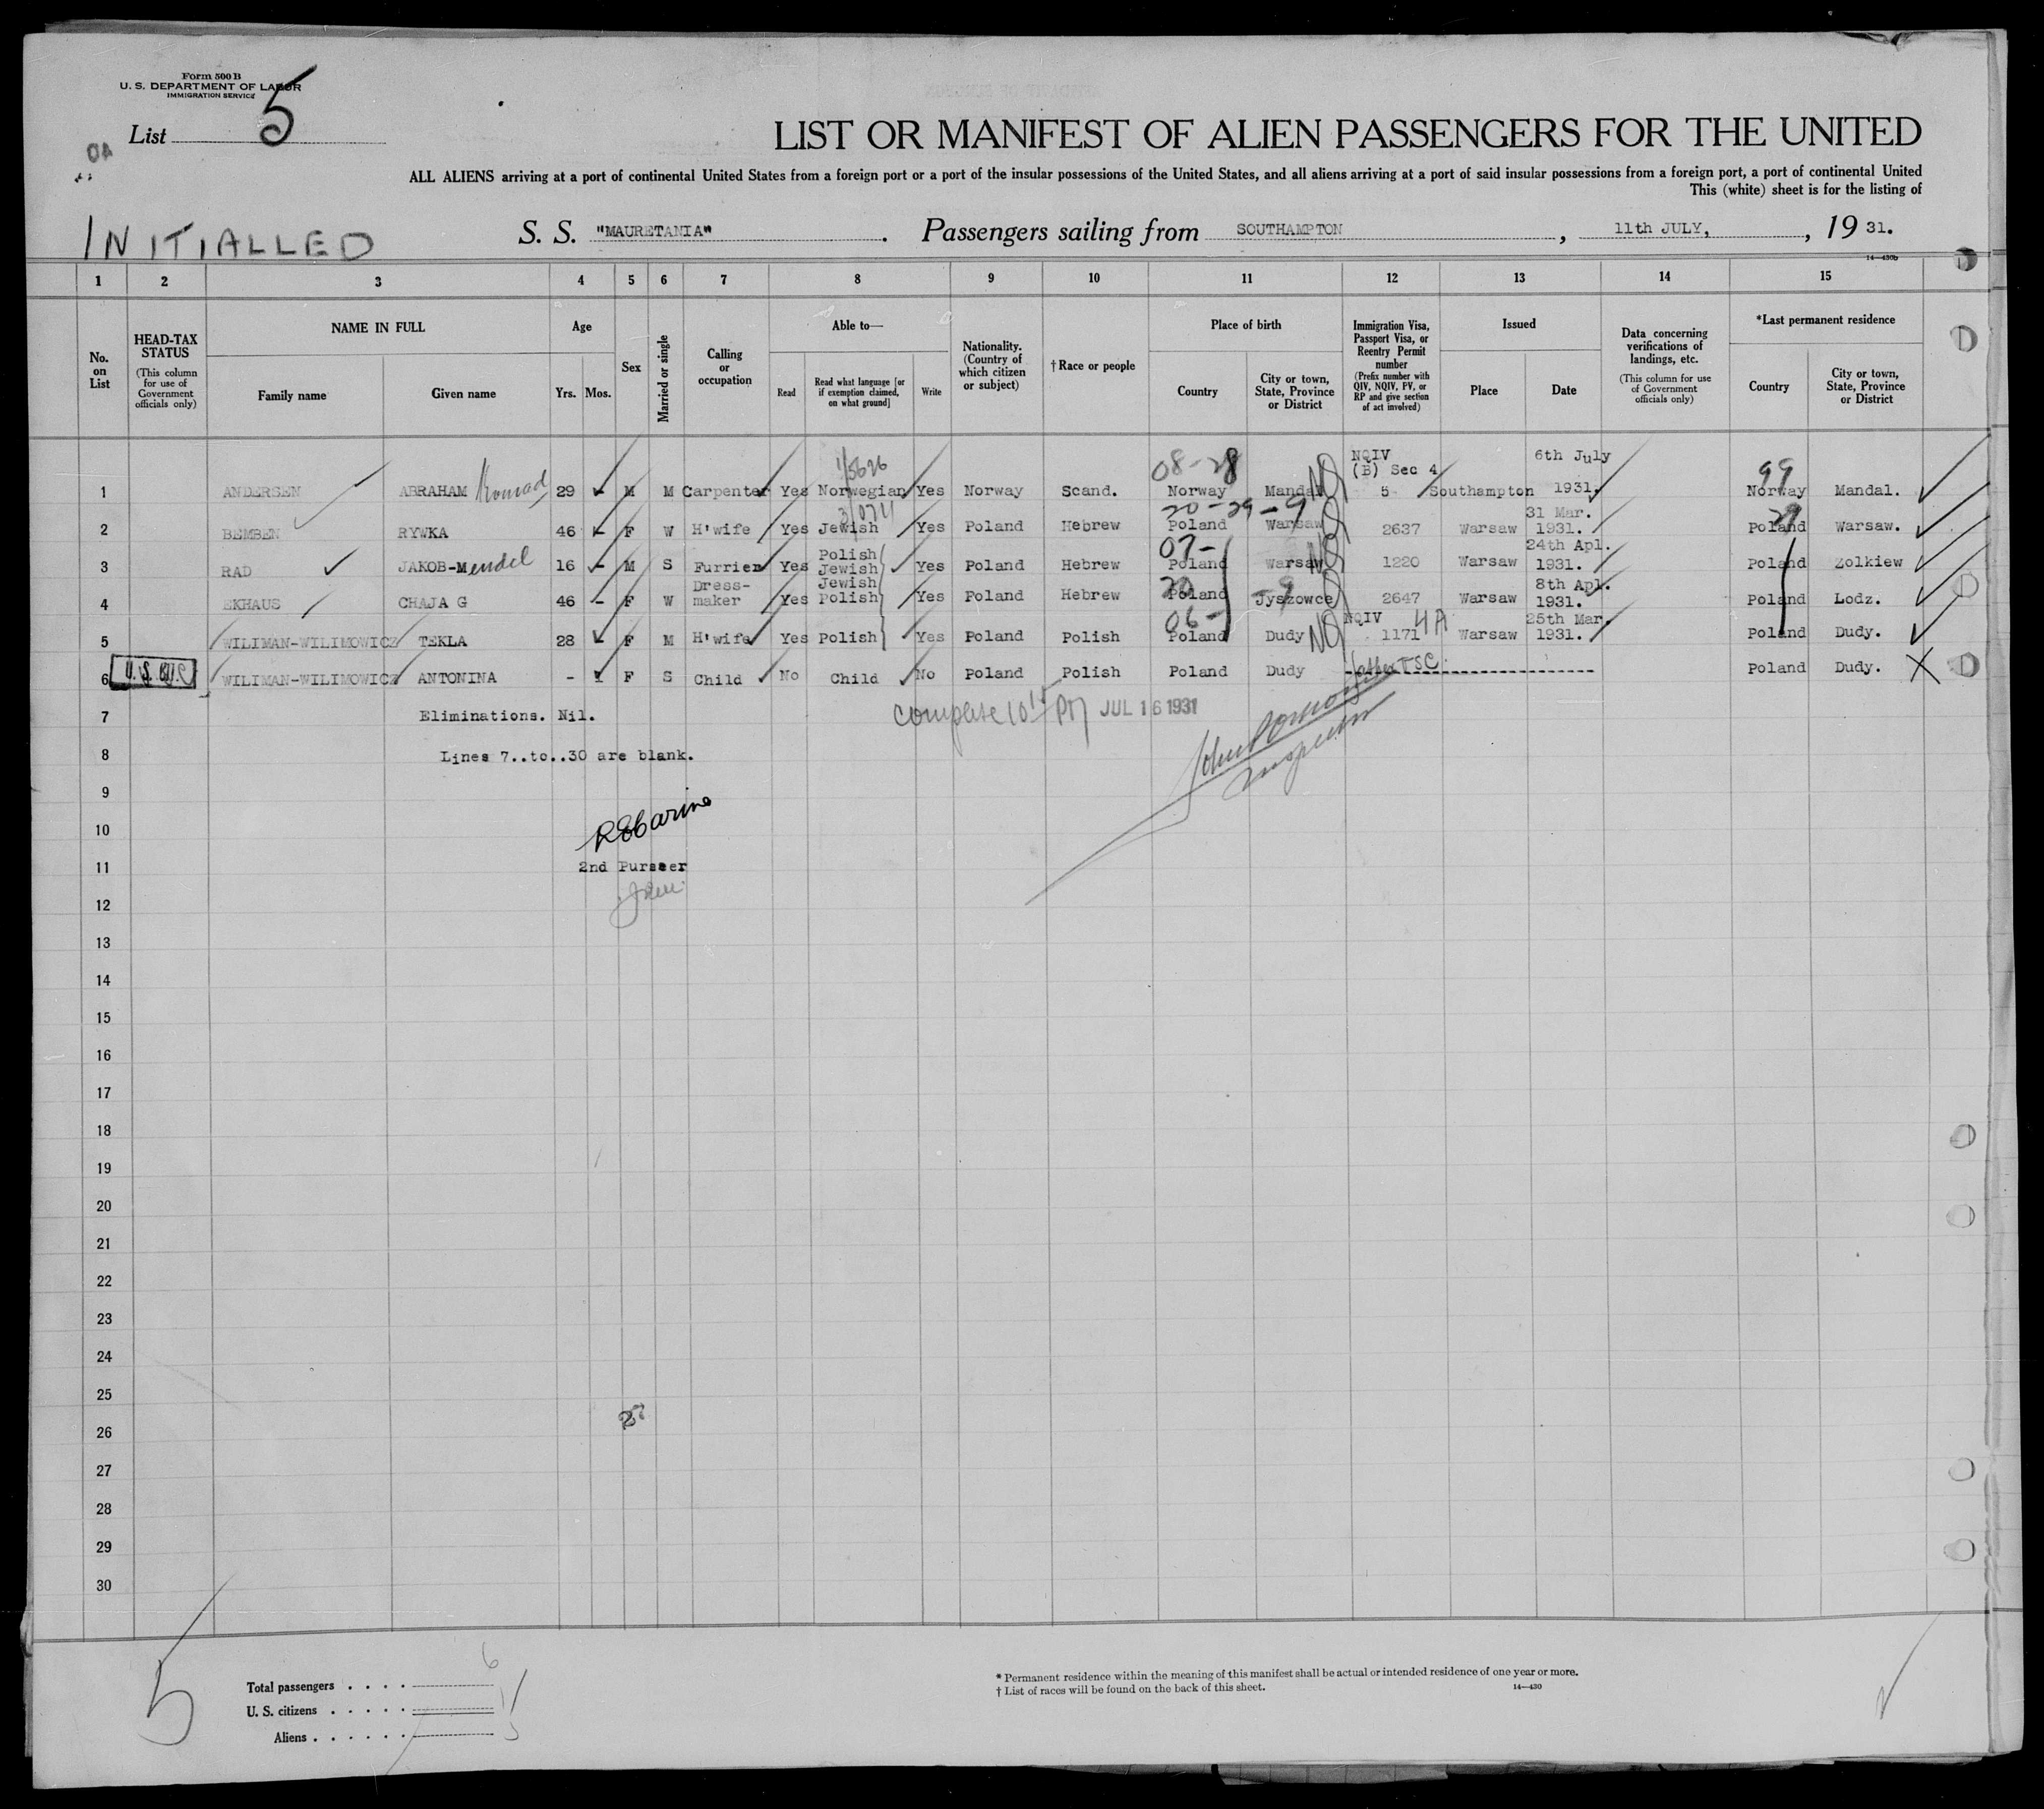 Form 500 B
U. S. DEPARTMENT OF LABOR
IMMIGRATION SERVICE
List 5
LIST OR MANIFEST OF ALIEN PASSENGERS FOR THE UNITED
ALL ALIENS arriving at a port of continental United States from a foreign port or a port of the insular possessions of the United States, and all aliens arriving at a port of said insular possessions from a foreign port, a port of continental United
This (white) sheet is for the listing of
INITIALLED
S. S. "MAURETANIA". Passengers sailing from SOUTHAMPTON, 11th JULY, , 19 31.
14—430b
1 2 3 4 5 6 7 8 9 10 11 12 13 14 15
No. on List
HEAD-TAX STATUS (This column for use of Government officials only)
NAME IN FULL Family name Given name
Age Yrs. Mos.
Sex
Married or single
Calling or occupation
Able to— Read Read what language [or if exemption claimed, on what ground] Write
Nationality. (Country of which citizen or subject)
†Race or people
Place of birth Country City or town, State, Province or District
Immigration Visa, Passport Visa, or Reentry Permit number (Prefix number with QIV, NQIV, PV, or RP and give section of act involved)
Issued Place Date
Data concerning verifications of landings, etc. (This column for use of Government officials only)
*Last permanent residence Country City or town, State, Province or District
1 ANDERSEN ABRAHAM Konrad 29 - M M Carpenter Yes Norwegian Yes Norway Scand. 08-28 Norway Mandal NQIV (B) Sec 4 5 Southampton 6th July 1931. 99 Norway Mandal.
2 BEMBEN RYWKA 46 - F W H'wife Yes Jewish Yes Poland Hebrew 20-29-9 Poland Warsaw 2637 Warsaw 31 Mar. 1931. 29 Poland Warsaw.
3 RAD JAKOB-Mendel 16 - M S Furrier Yes Polish Jewish Yes Poland Hebrew 07- Poland Warsaw 1220 Warsaw 24th Apl. 1931. Poland Zolkiew
4 EKHAUS CHAJA G 46 - F W Dress-maker Yes Jewish Polish Yes Poland Hebrew 20 Poland 9 Tyszowce 2647 Warsaw 8th Apl. 1931. Poland Lodz.
5 WILIMAN-WILIMOWICZ TEKLA 28 - F M H'wife Yes Polish Yes Poland Polish 06- Poland Dudy NQIV 1171 4A Warsaw 25th Mar. 1931. Poland Dudy.
6 WILIMAN-WILIMOWICZ ANTONINA - F S Child No Child No Poland Polish Poland Dudy Poland Dudy.
7 Eliminations. Nil. complete 10 15 PM JUL 16 1931
8 Lines 7..to..30 are blank.
9
10
11 2nd Purser
12
13
14
15
16
17
18
19
20
21
22
23
24
25
26
27
28
29
30
5
Total passengers . . . . 6
U. S. citizens . . . . . 1
Aliens . . . . . . 5
* Permanent residence within the meaning of this manifest shall be actual or intended residence of one year or more.
† List of races will be found on the back of this sheet.
14—430